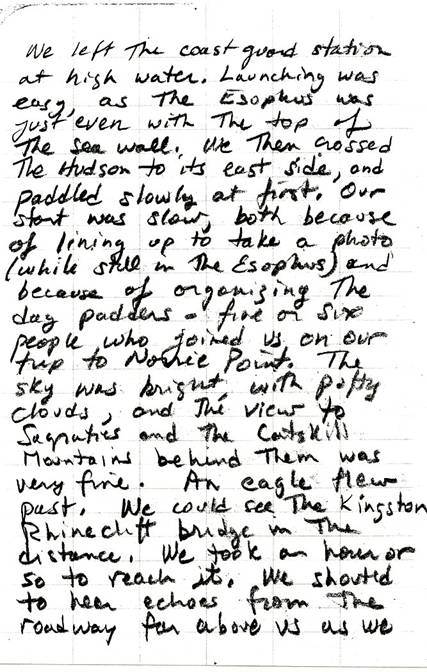 We left The coast guard station
at high water. Launching was
easy, as The Esophus was
just even with The top of
The sea wall. We Then crossed
The Hudson to its east side, and
paddled slowly at first. Our
start was slow, both because
of lining up to take a photo
(while still in The Esophus) and
because of organizing The
day padders - five or six
people who joined us on our
trip to Norrie Point. The
sky was bright, with puffy
clouds, and The view to
Sagraties and The Catskill
Mountains behind Them was
very fine. An eagle flew
past. We could see The Kingston
Rhinecliff bridge in The
distance. We took an hour or
so to reach it. We shouted
to hear echoes from The
roadway far above us as we